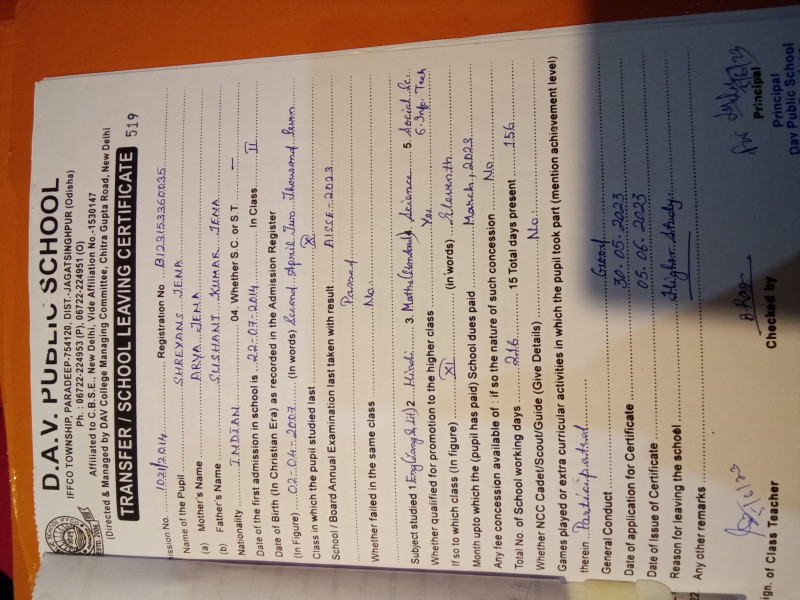 D.A.V. PUBLIC SCHOOL
IFFCO TOWNSHIP, PARADEEP-754120, DIST.-JAGATSINGHPUR (Odisha)
Ph. : 06722-224953 (P), 06722-224951 (O)
Affiliated to C.B.S.E., New Delhi, Vide Affiliation No.-1530147
(Directed & Managed by DAV College Managing Committee, Chitra Gupta Road, New Delhi
TRANSFER / SCHOOL LEAVING CERTIFICATE 519
ission No. 1021/2014 Registration No B123153360035
Name of the Pupil SHREYANS JENA
(a) Mother's Name ARYA JENA
(b) Father's Name SUSHANT KUMAR JENA
Nationality INDIAN 04. Whether S.C. or S.T. —
Date of the first admission in school is 22-07-2014 In Class II
Date of Birth (In Christian Era) as recorded in the Admission Register
(In Figure) 02-04-2007 (In words) Second April Two Thousand Seven
Class in which the pupil studied last X
School / Board Annual Examination last taken with result AISSE-2023
Passed
Whether failed in the same class No
Subject studied 1. Eng (Lang & Lit) 2. Hindi 3. Maths (Standard) 4. Science 5. Social Sc.
6. Info. Tech
Whether qualified for promotion to the higher class Yes
If so to which class (In figure) XI (In words) Eleventh
Month upto which the (pupil has paid) School dues paid March, 2023
Any fee concession available of : if so the nature of such concession No
Total No. of School working days 216 15 Total days present 156
Whether NCC Cadet/Scout/Guide (Give Details) No
Games played or extra curricular activities in which the pupil took part (mention achievement level)
therein Participated
General Conduct Good
Date of application for Certificate 30-05-2023
Date of Issue of Certificate 05-06-2023
Reason for leaving the school Higher Study
22 Any other remarks
ign. of Class Teacher Checked by Principal
Principal
Dav Public School